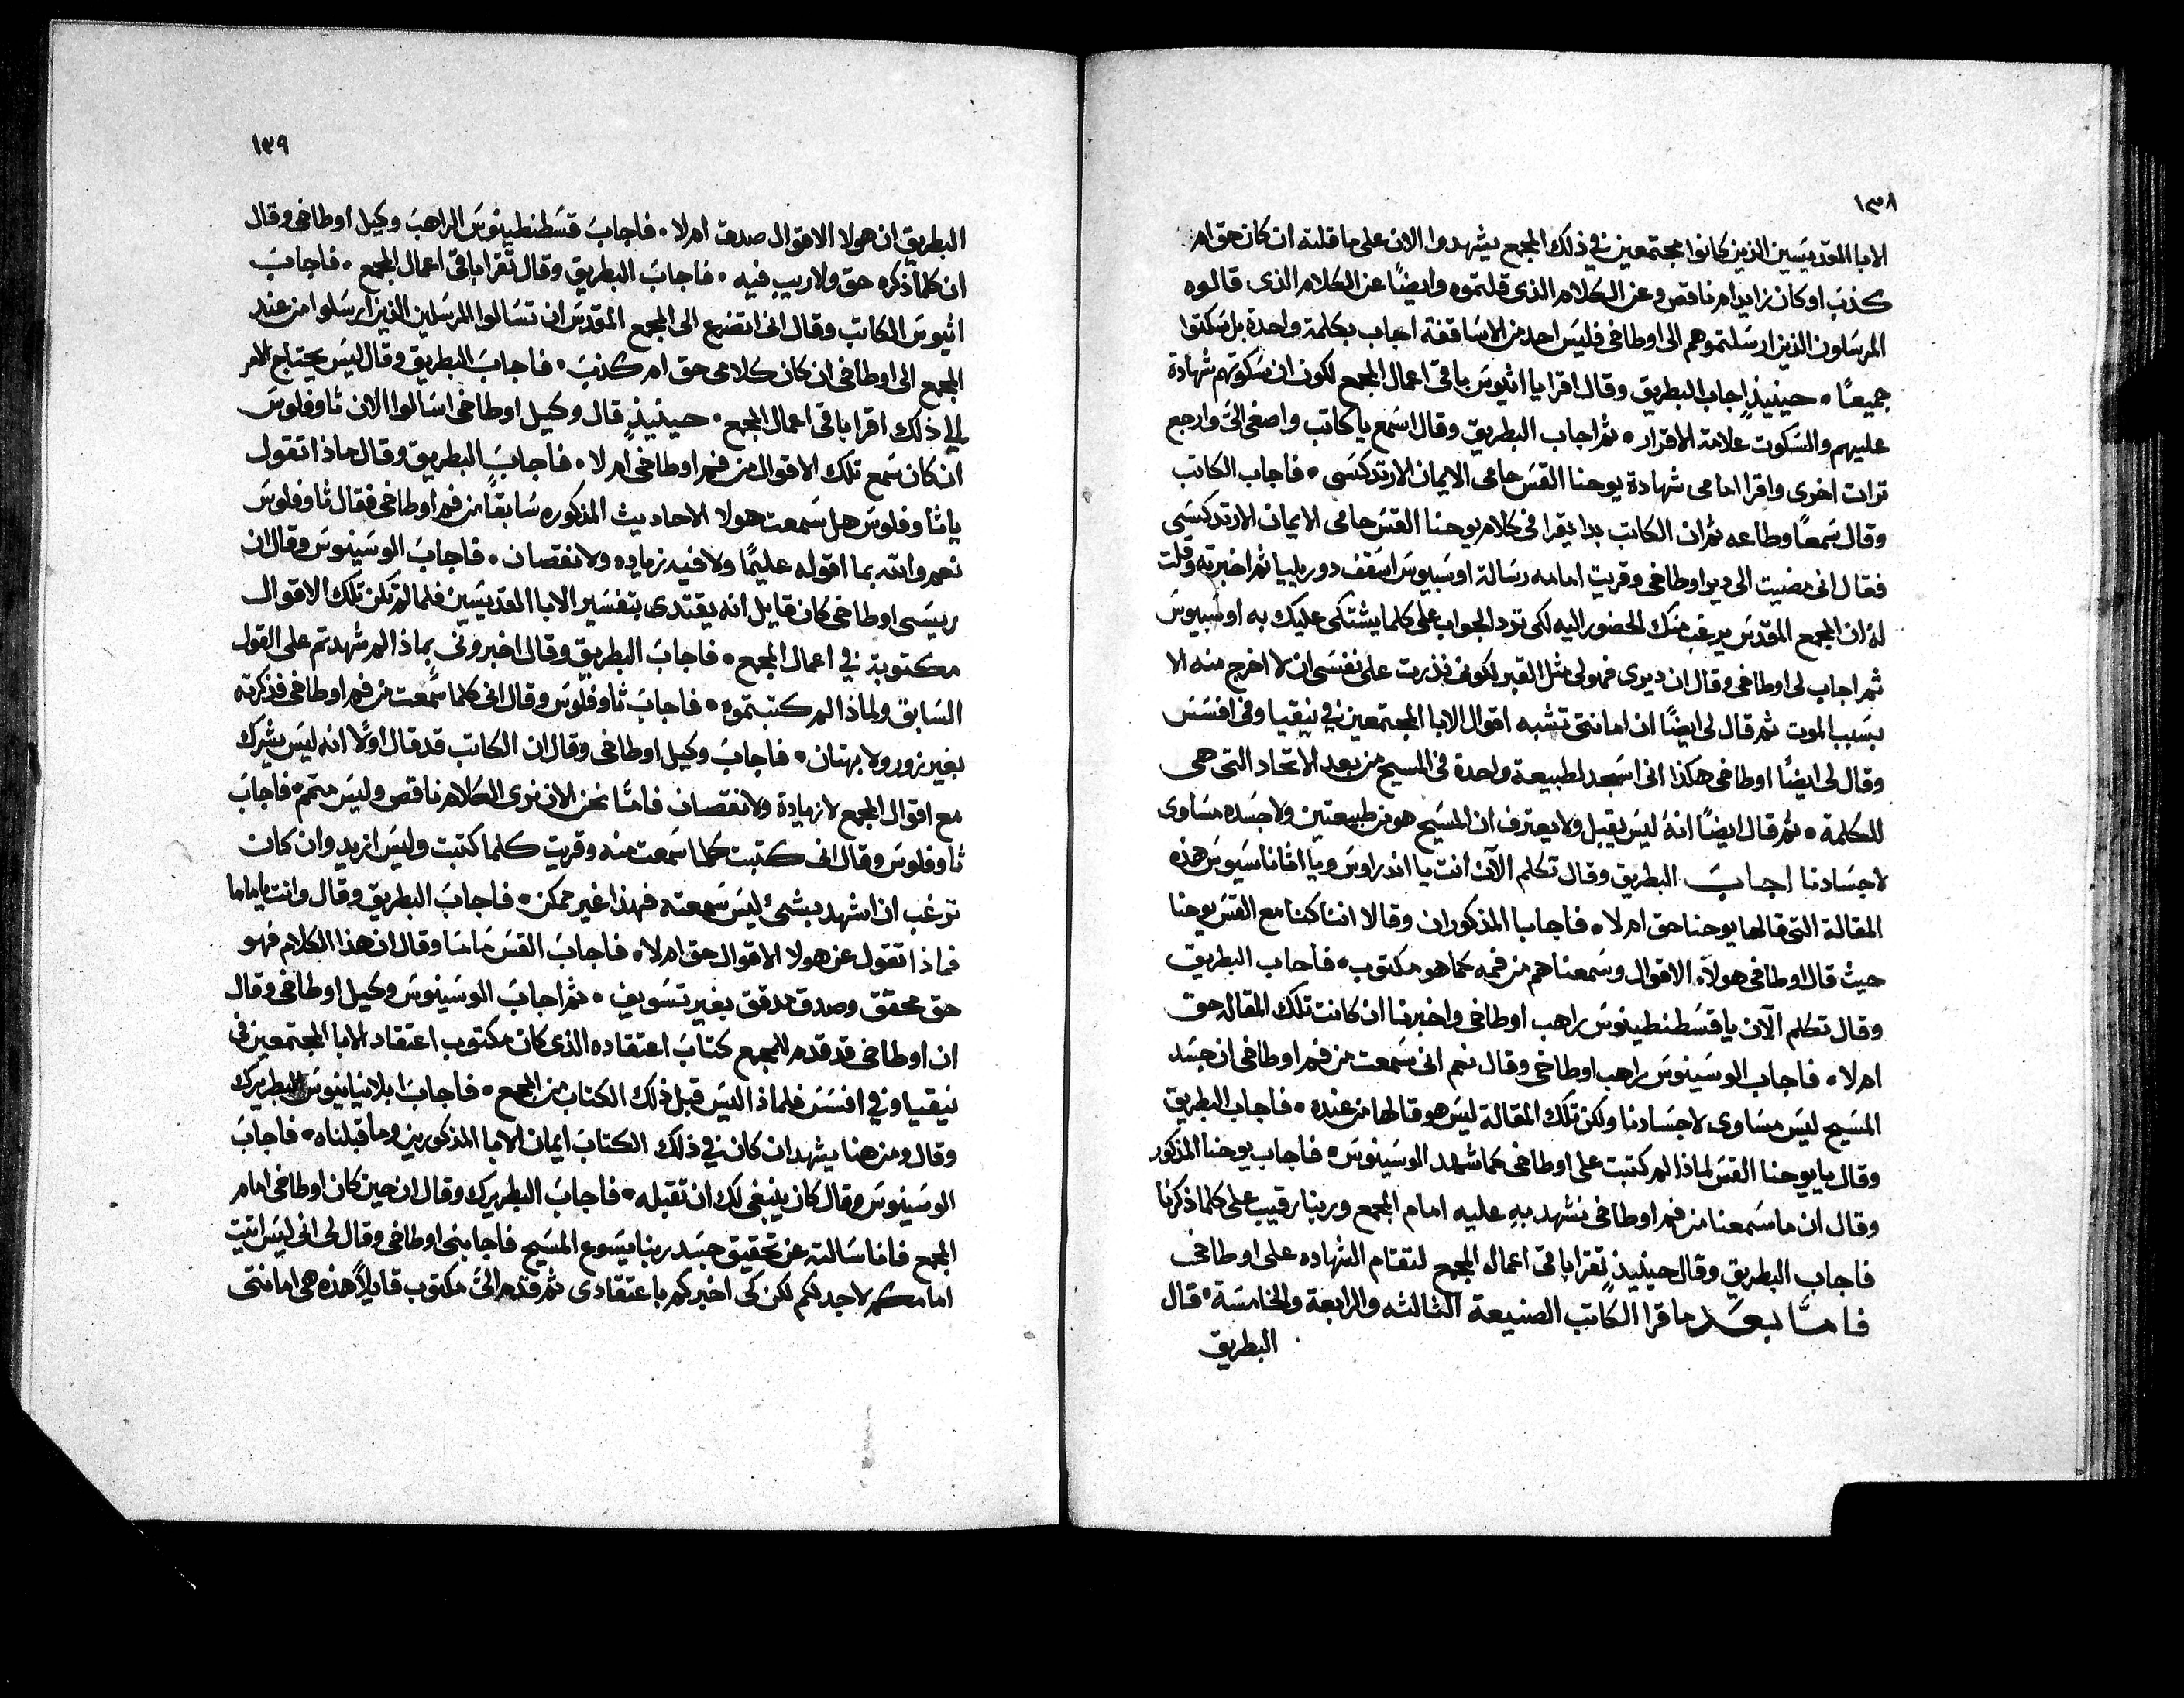 ١٣٨
الابا المقديسين الذين كانوا مجتمعين في ذلك المجمع يشهدوا الان على ما قلته ان كان حق ام
كذب او كان زايد ام ناقص وعن الكلام الذى قلتموه وايضًا عن الكلام الذى قالوه
المرسلون الذين ارسلتموهم الى اوطاخى فليس احد من الاساقفة اجاب بكلمة واحدة بل سكتوا
جميعًا • حينيذٍ اجاب البطريق وقال اقرا يا اثيوس باقى اعمال المجمع لكون ان سكوتهم شهادة
عليهم والسكوت علامة الاقرار • ثم اجاب البطريق وقال اسمع يا كاتب واصغى الىَّ وارجع
ترات اخرى واقرا امامى شهادة يوحنا القس حامى الايمان الارتدكسى • فاجاب الكاتب
وقال سمعًا وطاعه ثم ان الكاتب بدا يقرا فى كلام يوحنا القس حامى الايمان الارتدكسى
فقال انى مضيت الى دير اوطاخى وقريت امامه رسالة اوسبيوس اسقف دوريليا ثم اخبرته وقلت
لهُ ان المجمع المقدس يرغب منك الحضور اليه لكى ترد الجواب على كلما يشتكى عليك به اوسبيوس
ثم اجاب لى اوطاخى وقال ان ديرى فهو لى مثل القبر لكونى نذرت على نفسى ان لا اخرج منه الا
بسبب الموت ثم قال لى ايضًا ان امانتى تشبه اقوال الابا المجتمعين في نيقيا وفى افسس
وقال لى ايضًا اوطاخى هكذا انى اسجد لطبيعة واحدة فى المسيح من بعد الاتحاد التى هى
للكلمة • ثم قال ايضًا انهُ ليس يقبل ولا يعترف ان المسيح هو من طبيعتين ولا جسده مساوى
لاجسادنا اجاب البطريق وقال تكلم الآن انت يا اندراوس ويا اثاناسيوس هذه
المقالة التى قالها يوحنا حق ام لا • فاجابا المذكوران وقالا اننا كنا مع القس يوحنا
حيث قال اوطاخى هولآء الاقوال وسمعناهم من فمه كما هو مكتوب • فاجاب البطريق
وقال تكلم الآن يا قسطنطينوس راهب اوطاخى واخبرنا ان كانت تلك المقاله حق
ام لا • فاجاب الوسينوس راهب اوطاخى وقال نعم انى سمعت من فم اوطاخى ان جسد
المسيح ليس مساوى لاجسادنا ولكن تلك المقالة ليس هو قالها من عنده • فاجاب البطريق
وقال يا يوحنا القس لماذا لم كتبت على اوطاخى كما شهد الوسينوس • فاجاب يوحنا المذكور
وقال ان ما سمعنا من فم اوطاخى نشهد بهِ عليه امام المجمع وربنا رقيب على كلما ذكرنا
فاجاب البطريق وقال حينيذٍ تقرا باقى اعمال المجمع لتقام الشهاده على اوطاخى
فامَّا بعد ما قرا الكاتب الصنيعة الثالثه والرابعة والخامسة • قال
البطريق
١٣٩
البطريق ان هولا الاقوال صدق ام لا • فاجاب قسطنطينوس الراهب وكيل اوطاخى وقال
ان كلما ذكره حق ولا ريب فيه • فاجاب البطريق وقال تقرا باقى اعمال المجمع • فاجاب
اثيوس الكاتب وقال انى اتضرع الى المجمع المقدس ان تسالوا المرسلين الذين ارسلوا من عند
المجمع الى اوطاخى ان كان كلامى حق ام كذب • فاجاب البطريق وقال ليس يحتاج الامر
الى ذلك اقرا باقى اعمال المجمع • حينيذٍ قال وكيل اوطاخى اسالوا الان ثاوفلوس
ان كان سمع تلك الاقوال من فم اوطاخى ام لا • فاجاب البطريق وقال ماذا تقول
يا ثاوفلوس هل سمعت هولا الاحاديث المذكوره سابقًا من فم اوطاخى فقال ثاوفلوس
نعم والله بما اقوله عليمًا ولا فيه زياده ولا نقصان • فاجاب الوسينوس وقال ان
ريسى اوطاخى كان قايل انه يقتدى بتفسير الابا القديسين فلما لم تكن تلك الاقوال
مكتوبة في اعمال المجمع • فاجاب البطريق وقال اخبرونى بماذا لم شهدتم على القول
السابق ولماذا لم كتبتموه • فاجاب ثاوفلوس وقال انى كلما سمعت من فم اوطاخى فذكرته
بغير زور ولا بهتان • فاجاب وكيل اوطاخى وقال ان الكاتب قد قال اولًا انه ليس يشرك
مع اقوال المجمع لا زيادة ولا نقصان فامَّا نحن الان نرى الكلام ناقص وليس متمم • فاجاب
ثاوفلوس وقال انى كتبت كلما سمعت منه وقريت كلما كتبت وليس ازيد وان كان
ترغب ان اشهد بشىء ليس سمعته فهذا غير ممكن • فاجاب البطريق وقال وانت يا ماما
فماذا تقول عن هولا الاقوال حق ام لا • فاجاب القس ماما وقال ان هذا الكلام فهو
حق محقق وصدق مدقق بغير تسويف • ثم اجاب الوسينوس وكيل اوطاخى وقال
ان اوطاخى قد قدم للمجمع كتاب اعتقاده الذى كان مكتوب اعتقاد الابا المجتمعين فى
نيقيا وفي افسس فلماذا ليس قبل ذلك الكتاب من المجمع • فاجاب ابلابيانيوس البطريرك
وقال ومن هنا يشهد ان كان في ذلك الكتاب ايمان الابا المذكورين وما قبلناه • فاجاب
الوسينوس وقال كان ينبغى لك ان تقبله • فاجاب البطريرك وقال ان حين كان اوطاخى امام
المجمع فانا سالته عن تحقيق جسد ربنا يسوع المسيح فاجابنى اوطاخى وقال لى انى ليس اتيت
امامكم لاجدلكم لكن كى اخبركم باعتقادى ثم قدم الىَّ مكتوب قايلًا هذه هى امانتى